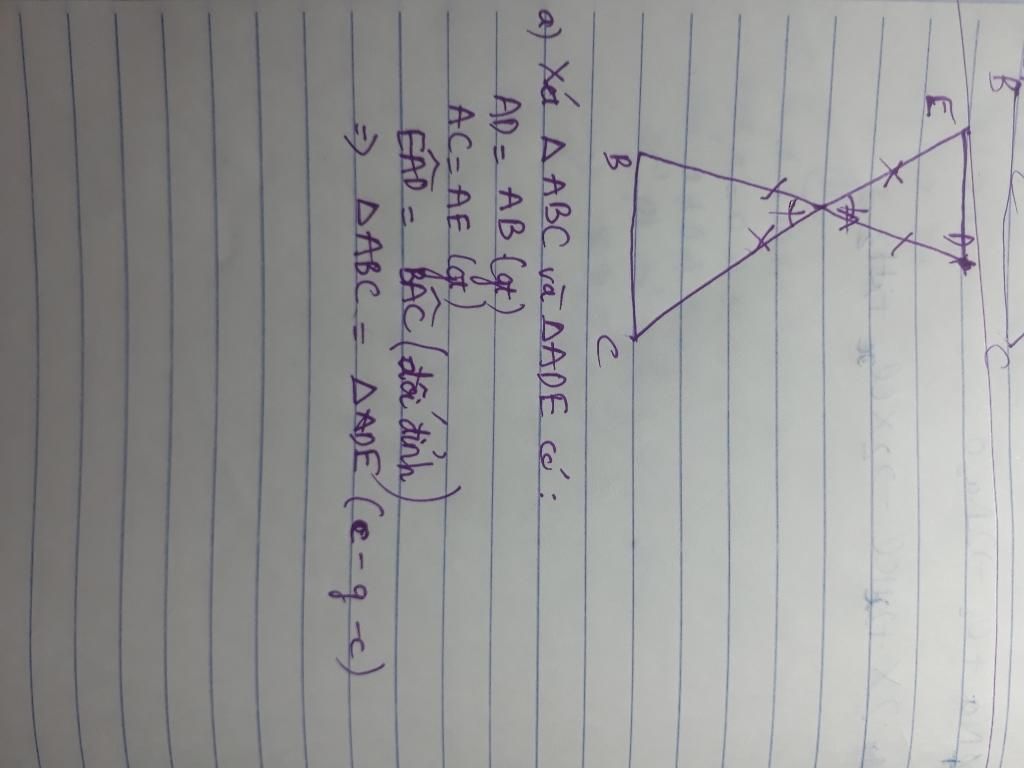 B
C
E
D
A
B
C
a) Xét Δ ABC và ΔADE có :
AD = AB (gt)
AC = AE (gt)
EÂD = BÂC (đối đỉnh)
=> ΔABC = ΔADE (c - g - c)